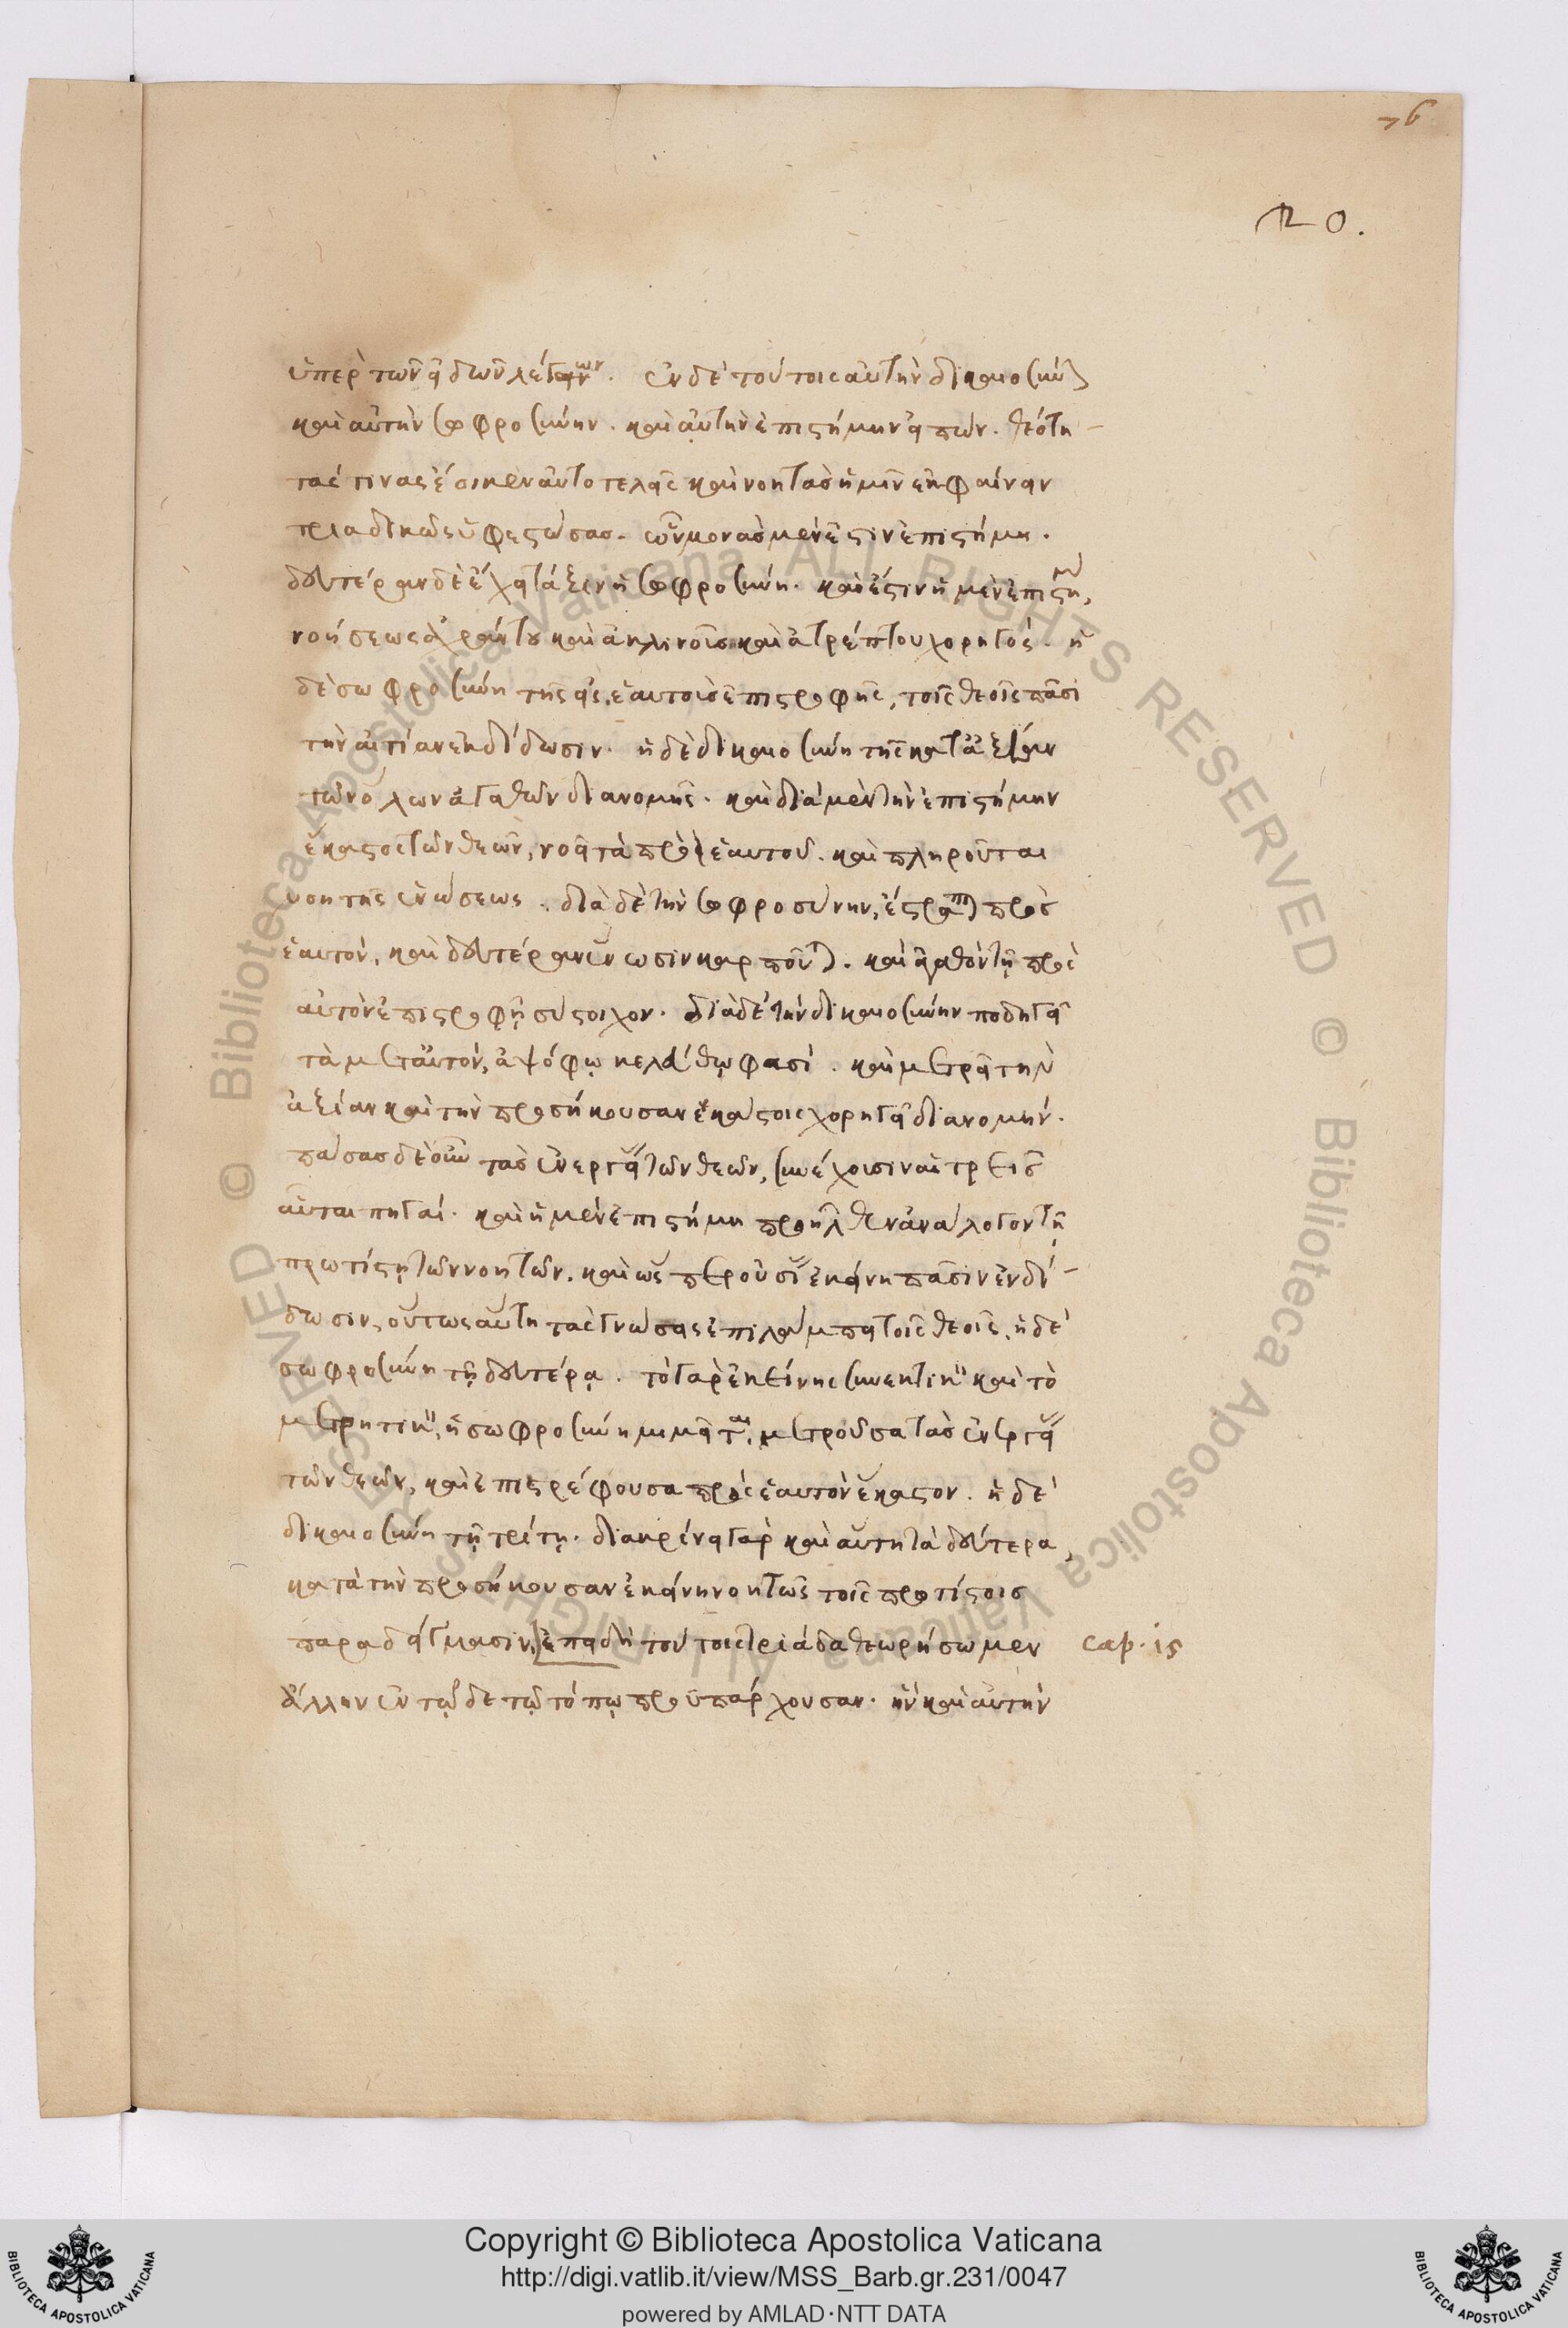 76
ὑπὲρ τῶν εἰδῶν λέγων. ἐν δὲ τούτοις αὐτὴν δικαιοσύνην
καὶ αὐτὴν σωφροσύνην. καὶ αὐτὴν ἐπιστήμην εἰπών. θεότη-
τάς τινας ἔοικεν αὐτοτελεῖς καὶ νοητὰς ἡμῖν ἐκφαίνειν
τριαδικῶς ὑφεστώσας. ὧν μονὰς μέν ἐστιν ἐπιστήμη.
δευτέραν δὲ ἔχει τάξιν ἡ σωφροσύνη. καὶ ἔστιν ἡ μὲν ἐπιστήμη,
νοήσεως ἀχράντου καὶ ἀκλινοῦς καὶ ἀτρέπτου χορηγός. ἡ
δὲ σωφροσύνη τῆς εἰς ἑαυτοὺς ἐπιστροφῆς, τοῖς θεοῖς πᾶσι
τὴν αἰτίαν ἐνδίδωσιν. ἡ δὲ δικαιοσύνη τῆς κατ' ἀξίαν
τῶν ὅλων ἀγαθῶν διανομῆς. καὶ διὰ μὲν τὴν ἐπιστήμην
ἕκαστος τῶν θεῶν, νοεῖ τὰ πρὸ ἑαυτοῦ. καὶ πληροῦται
νοητῆς ἑνώσεως. διὰ δὲ τὴν σωφροσύνην, ἐστραπται πρὸς
ἑαυτόν, καὶ δευτέραν ἕνωσιν καρποῦται. καὶ ἀγαθὸν τῇ πρὸς
αὑτὸν ἐπιστροφῇ σύστοιχον. διὰ δὲ τὴν δικαιοσύνην ποδηγεῖ
τὰ μετ' αὐτόν, ἀψόφῳ κελεύθῳ φασί. καὶ μετρεῖ τὴν
ἀξίαν καὶ τὴν προσήκουσαν ἑκάστοις χορηγεῖ διανομήν.
πάσας δὲ οὖν τὰς ἐνεργείας τῶν θεῶν, συνέχουσιν αἱ τρεῖς
αὗται πηγαί. καὶ ἡ μὲν ἐπιστήμη προῆλθεν ἀνάλογον τῇ
πρωτίστῃ τῶν νοητῶν. καὶ ὥσπερ οὐσίας ἐκείνη πᾶσιν ἐνδί-
δωσιν, οὕτως αὕτη τὰς γνώσεις ἐπιλάμπει τοῖς θεοῖς. ἡ δὲ
σωφροσύνη τῇ δευτέρᾳ. τὸ γὰρ ἐκείνης συνεκτικὸν καὶ τὸ
μετρητικὸν, ἡ σωφροσύνη μιμεῖται, μετροῦσα τὰς ἐνεργείας
τῶν θεῶν, καὶ ἐπιστρέφουσα πρὸς ἑαυτὸν ἕκαστον. ἡ δὲ
δικαιοσύνη τῇ τρίτῃ. διακρίνει γὰρ καὶ αὕτη τὰ δεύτερα,
κατὰ τὴν προσήκουσαν ἐκείνη νοητῶς τοῖς πρωτίστοις
παραδείγμασιν, ἐπειδὴ τούτοις τριάδα θεωρήσωμεν cap. is
ἄλλην ἐν τῷδε τῷ τόπῳ προϋπάρχουσαν. ἣν καὶ αὐτὴν
Copyright © Biblioteca Apostolica Vaticana
http://digi.vatlib.it/view/MSS_Barb.gr.231/0047
powered by AMLAD·NTT DATA
BIBLIOTECA APOSTOLICA VATICANA
BIBLIOTECA APOSTOLICA VATICANA